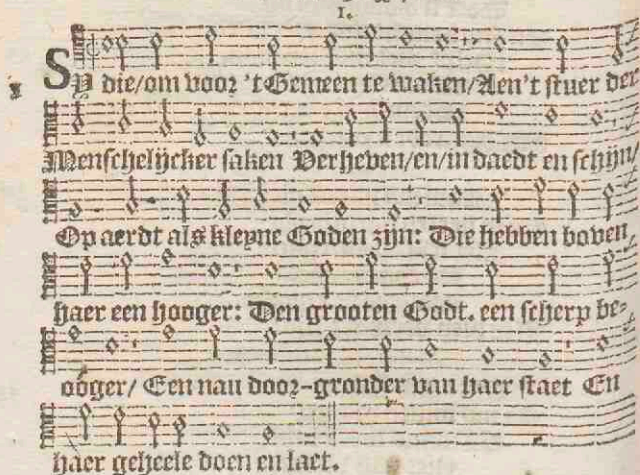 I.
SY die/om voor 't Gemeen te waken/Aen't stuer der
Menschelijcker saken Verheven/en/in daedt en schijn/
Op aerdt als kleyne Goden zijn: Die hebben boven
haer een hooger: Den grooten Godt. een scherp be-
ooger/ Een nau door-gronder van haer staet En
haer geheele doen en laet.